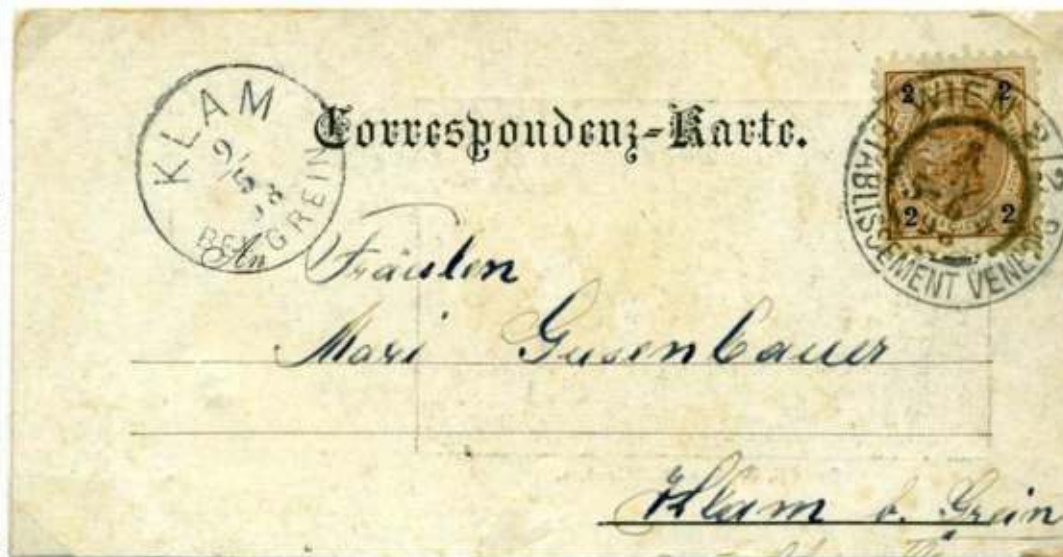 KLAM
9/5
BEI GREIN
Correspondenz-Karte.
2 2
2 2
WIEN 2/2
ETABLISSEMENT VENEDIG
An
Fräulen
Mari Gusenbauer
Klam b. Grein